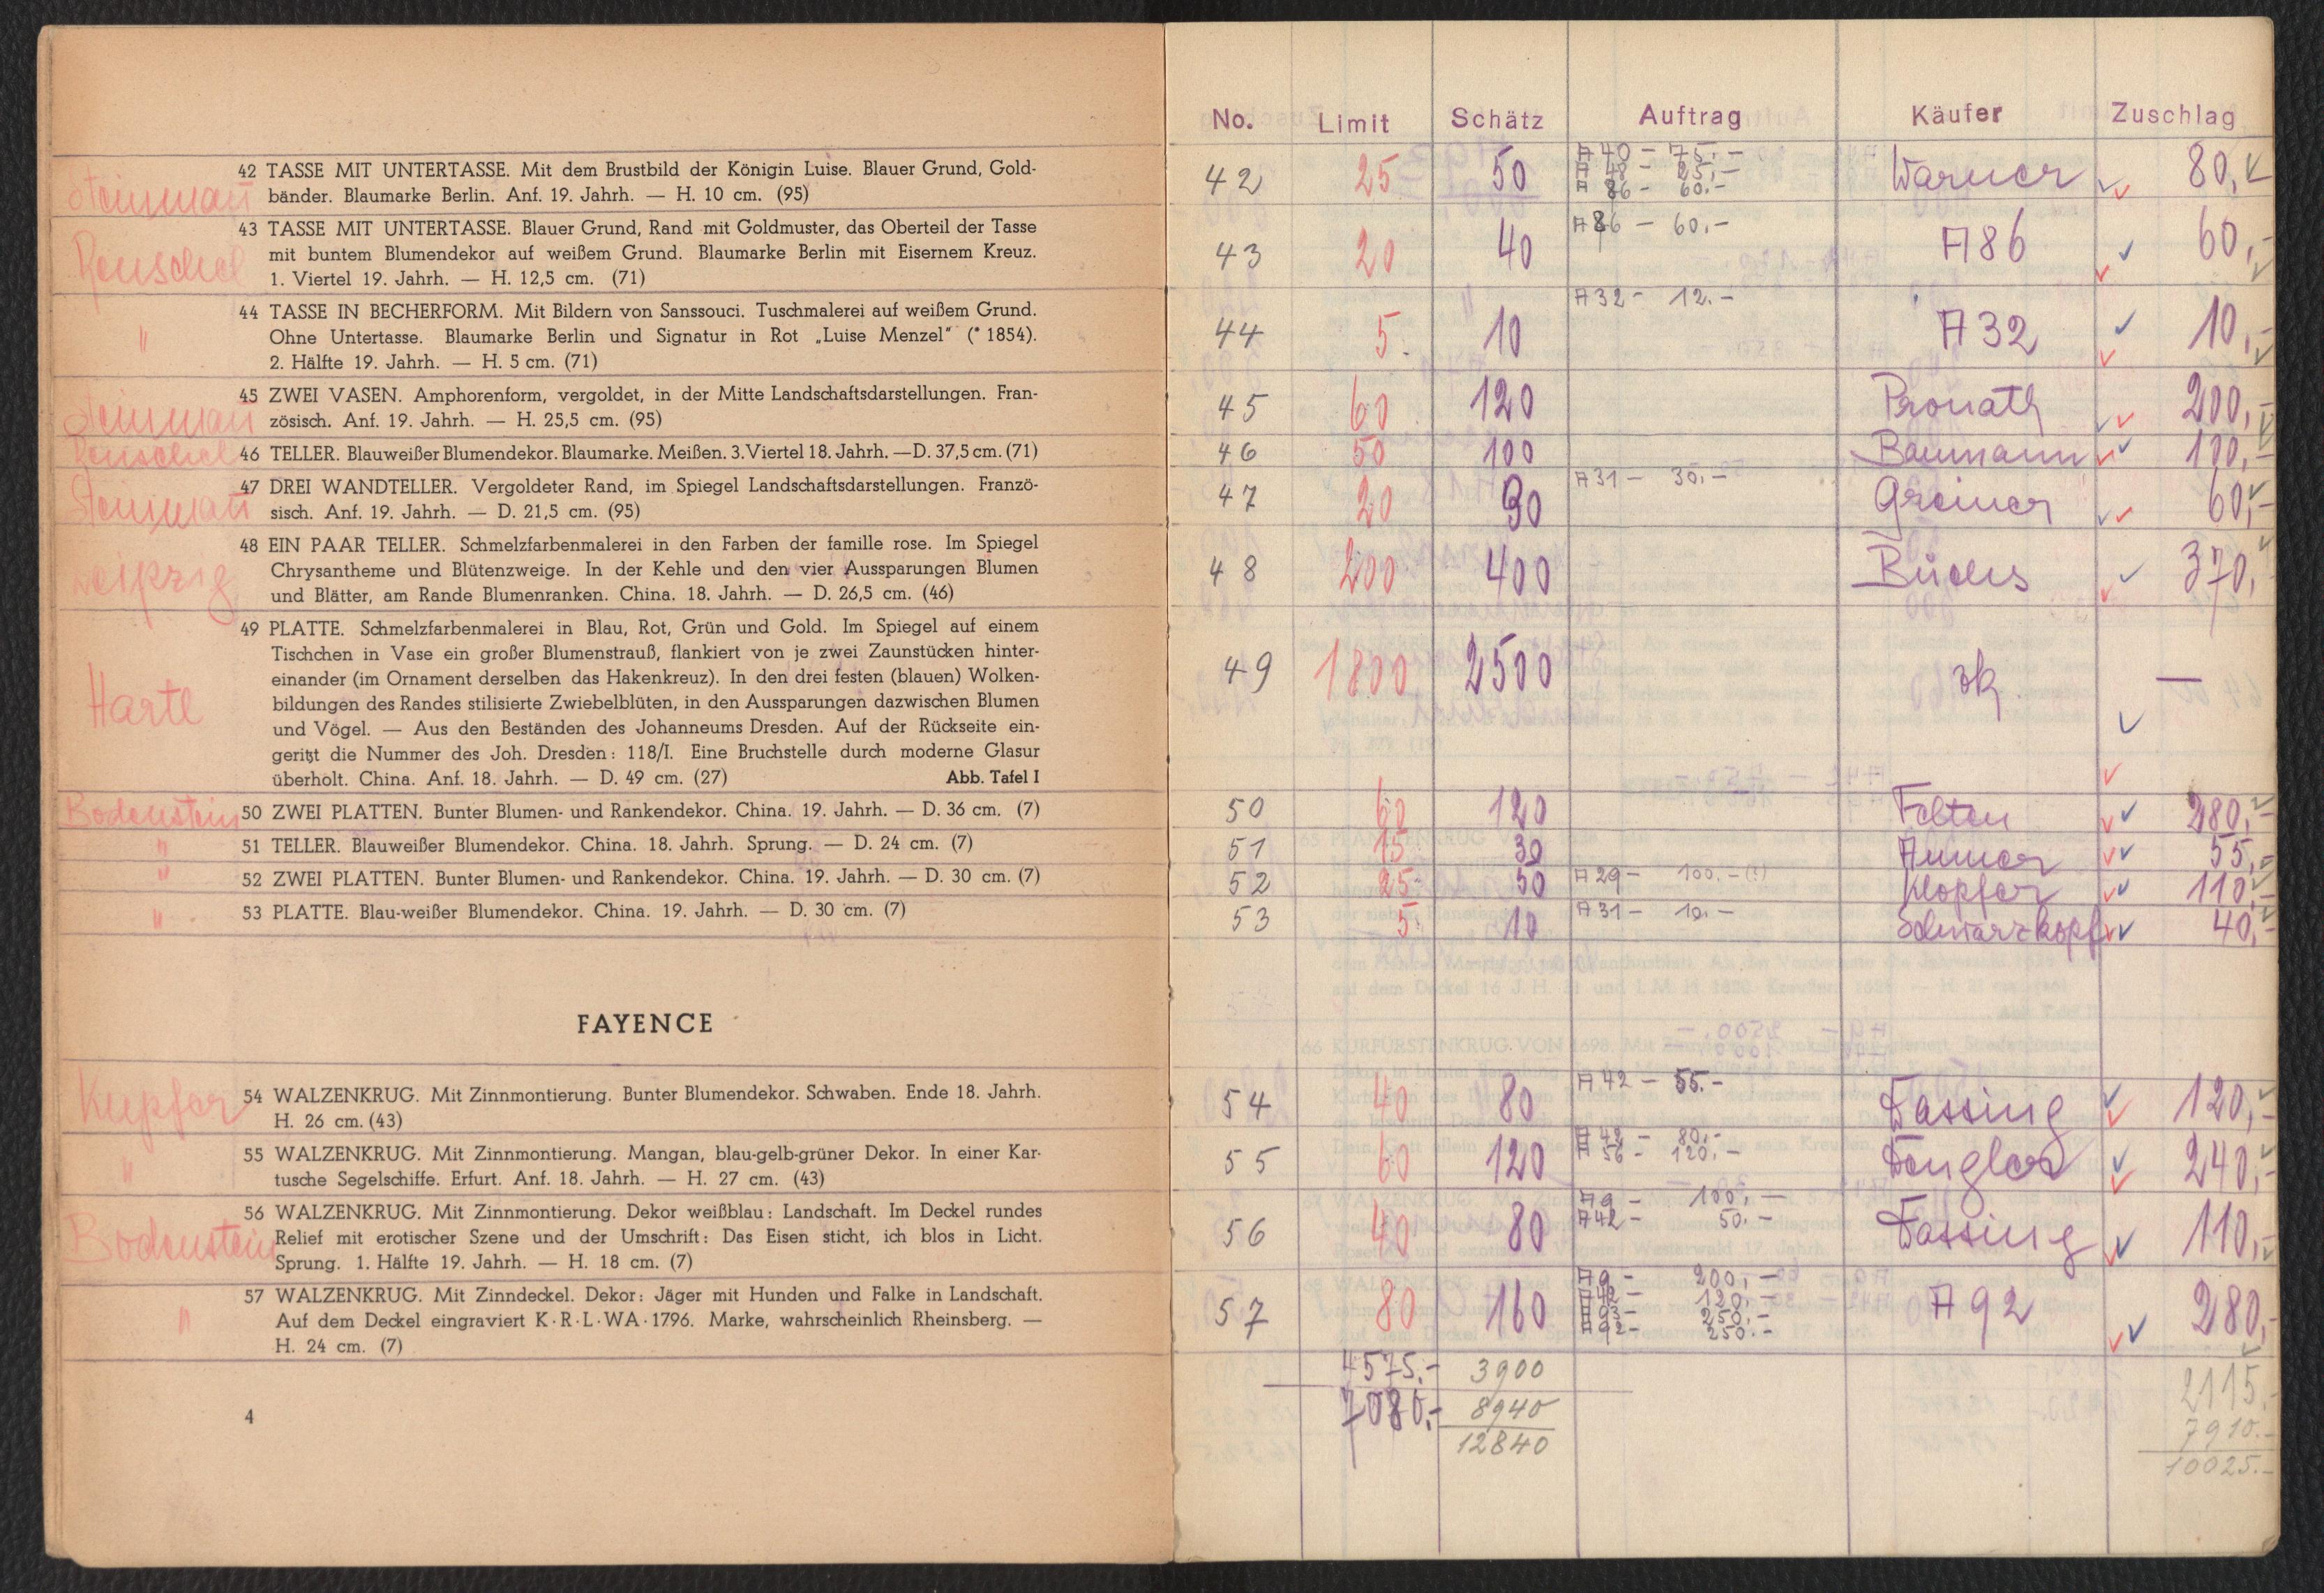 Steinman
42 TASSE MIT UNTERTASSE. Mit dem Brustbild der Königin Luise. Blauer Grund, Gold-
bänder. Blaumarke Berlin. Anf. 19. Jahrh. — H. 10 cm. (95)
Renschel
43 TASSE MIT UNTERTASSE. Blauer Grund, Rand mit Goldmuster, das Oberteil der Tasse
mit buntem Blumendekor auf weißem Grund. Blaumarke Berlin mit Eisernem Kreuz.
1. Viertel 19. Jahrh. — H. 12,5 cm. (71)
"
44 TASSE IN BECHERFORM. Mit Bildern von Sanssouci. Tuschmalerei auf weißem Grund.
Ohne Untertasse. Blaumarke Berlin und Signatur in Rot „Luise Menzel" (* 1854).
2. Hälfte 19. Jahrh. — H. 5 cm. (71)
Steinman
45 ZWEI VASEN. Amphorenform, vergoldet, in der Mitte Landschaftsdarstellungen. Fran-
zösisch. Anf. 19. Jahrh. — H. 25,5 cm. (95)
Renschel
46 TELLER. Blauweißer Blumendekor. Blaumarke. Meißen. 3. Viertel 18. Jahrh. — D. 37,5 cm. (71)
Steinman
47 DREI WANDTELLER. Vergoldeter Rand, im Spiegel Landschaftsdarstellungen. Franzö-
sisch. Anf. 19. Jahrh. — D. 21,5 cm. (95)
Leipzig
48 EIN PAAR TELLER. Schmelzfarbenmalerei in den Farben der famille rose. Im Spiegel
Chrysantheme und Blütenzweige. In der Kehle und den vier Aussparungen Blumen
und Blätter, am Rande Blumenranken. China. 18. Jahrh. — D. 26,5 cm. (46)
Hartl
49 PLATTE. Schmelzfarbenmalerei in Blau, Rot, Grün und Gold. Im Spiegel auf einem
Tischchen in Vase ein großer Blumenstrauß, flankiert von je zwei Zaunstücken hinter-
einander (im Ornament derselben das Hakenkreuz). In den drei festen (blauen) Wolken-
bildungen des Randes stilisierte Zwiebelblüten, in den Aussparungen dazwischen Blumen
und Vögel. — Aus den Beständen des Johanneums Dresden. Auf der Rückseite ein-
geritzt die Nummer des Joh. Dresden: 118/I. Eine Bruchstelle durch moderne Glasur
überholt. China. Anf. 18. Jahrh. — D. 49 cm. (27) Abb. Tafel I
Bodenstein
50 ZWEI PLATTEN. Bunter Blumen- und Rankendekor. China. 19. Jahrh. — D. 36 cm. (7)
"
51 TELLER. Blauweißer Blumendekor. China. 18. Jahrh. Sprung. — D. 24 cm. (7)
"
52 ZWEI PLATTEN. Bunter Blumen- und Rankendekor. China. 19. Jahrh. — D. 30 cm. (7)
"
53 PLATTE. Blau-weißer Blumendekor. China. 19. Jahrh. — D. 30 cm. (7)
FAYENCE
Kupfer
54 WALZENKRUG. Mit Zinnmontierung. Bunter Blumendekor. Schwaben. Ende 18. Jahrh.
H. 26 cm. (43)
"
55 WALZENKRUG. Mit Zinnmontierung. Mangan, blau-gelb-grüner Dekor. In einer Kar-
tusche Segelschiffe. Erfurt. Anf. 18. Jahrh. — H. 27 cm. (43)
Bodenstein
56 WALZENKRUG. Mit Zinnmontierung. Dekor weißblau: Landschaft. Im Deckel rundes
Relief mit erotischer Szene und der Umschrift: Das Eisen sticht, ich blos in Licht.
Sprung. 1. Hälfte 19. Jahrh. — H. 18 cm. (7)
"
57 WALZENKRUG. Mit Zinndeckel. Dekor: Jäger mit Hunden und Falke in Landschaft.
Auf dem Deckel eingraviert K·R·L·WA·1796. Marke, wahrscheinlich Rheinsberg. —
H. 24 cm. (7)
4
No. Limit Schätz Auftrag Käufer Zuschlag
42 25 50 A 40 — 75.— Warner 80,
A 48 — 25,—
A 86 — 60.—
43 20 40 A 86 — 60.— A 86 60,—
44 5. 10 A 32 — 12.— A 32 10,—
45 60 120 Pronath 200,—
46 50 100 Baumann 100,—
47 20 90 A 31 — 30.— Greiner 60,—
48 200 400 370,
49 1800 2500 zk. —
50 60 120 Felten 280,—
51 15 30 55,—
52 25 50 A 29 — 100.— (!) Klopfer 110,—
53 5 10 A 31 — 10.— Schwarzkopf 40,—
54 40 80 A 42 — 55.— Fassing 120,—
55 60 120 A 42 — 80.— Fengler 240,—
A 56 — 120.—
56 40 80 A 9 — 100,— Fassing 110,—
A 42 — 50.—
57 80 160 A 9 — 200,— A 92 280,—
A 42 — 120.—
A 93 — 250.—
A 92 — 250.—
4575.— 3900 2115.
7080.— 8940 7910.—
12840 10025.—